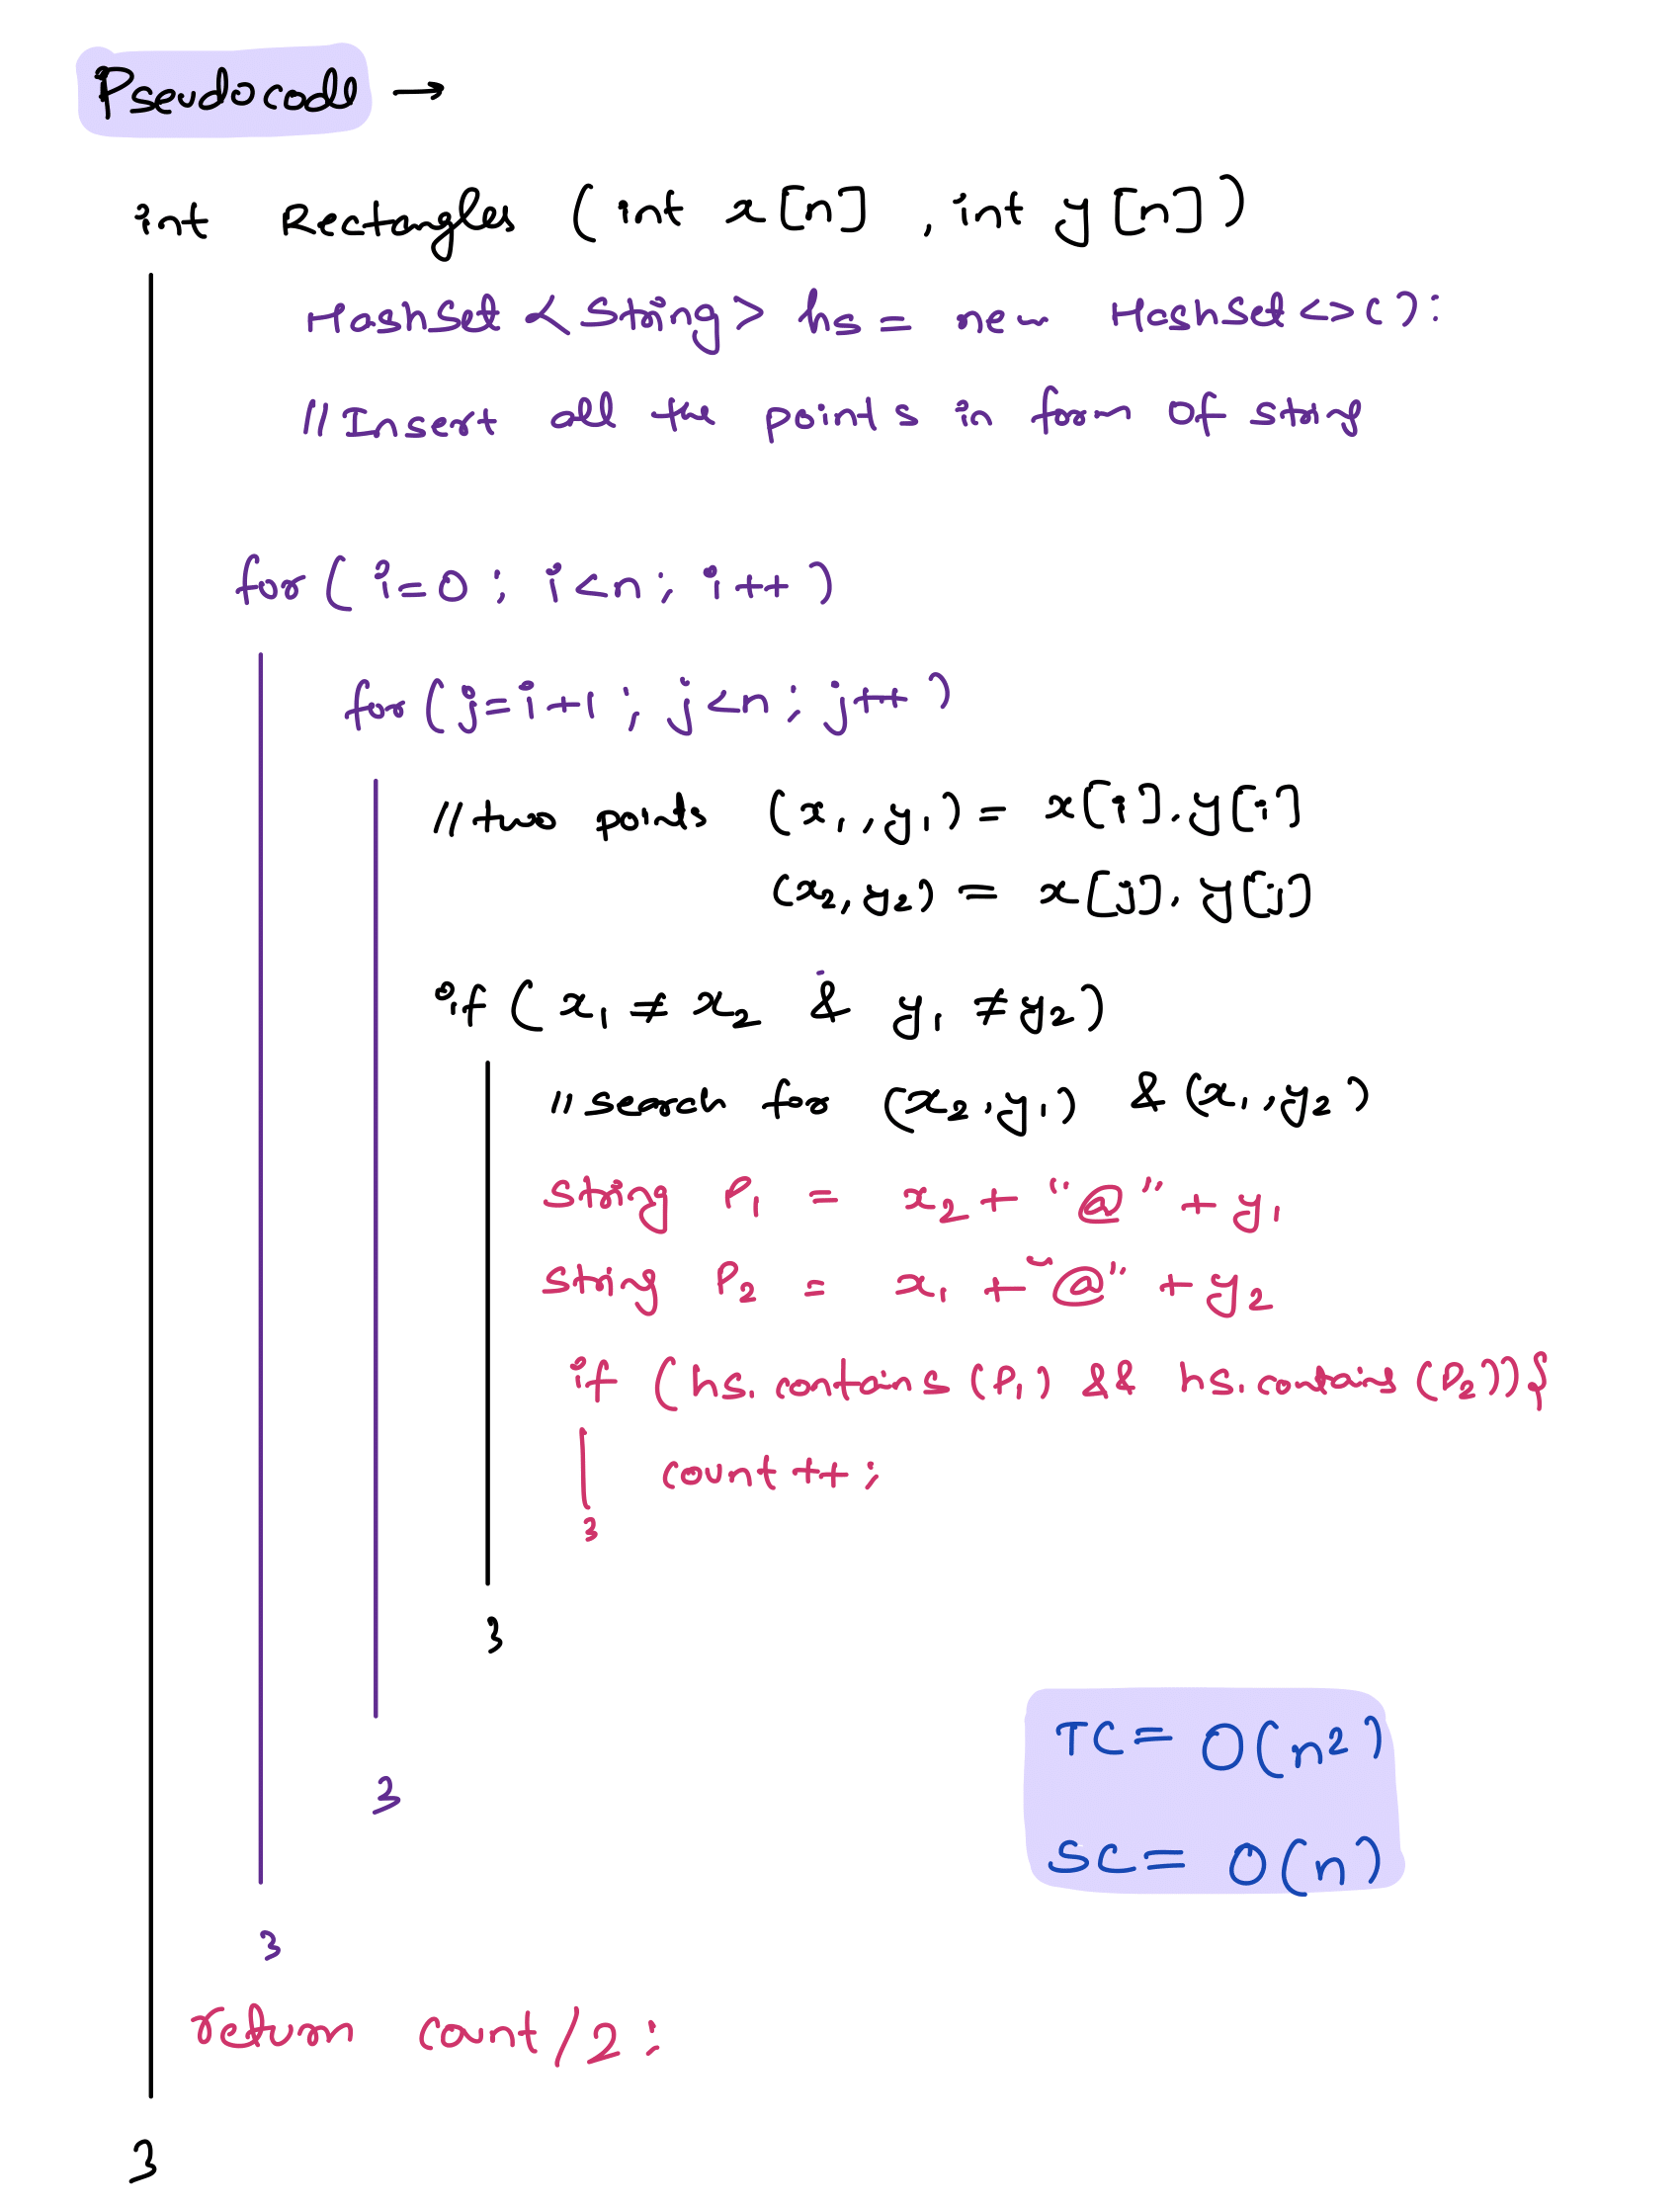 Pseudocode →
int Rectangles (int x[n], int y[n])
HashSet <String> hs = new HashSet<>();
//Insert all the points in form of string
for( i=0 ; i<n ; i++ )
for(j=i+1 ; j<n ; j++ )
//two points (x₁,y₁) = x[i].y[i]
(x₂,y₂) = x[j].y[j]
if( x₁ ≠ x₂ & y₁ ≠ y₂)
//search for (x₂,y₁) & (x₁,y₂)
string P₁ = x₂ + "@" + y₁
string P₂ = x₁ + "@" + y₂
if (hs.contains(P₁) && hs.contains(P₂)){
count++ ;
}
}
TC = O(n²)
}
SC = O(n)
}
return count/2 ;
}